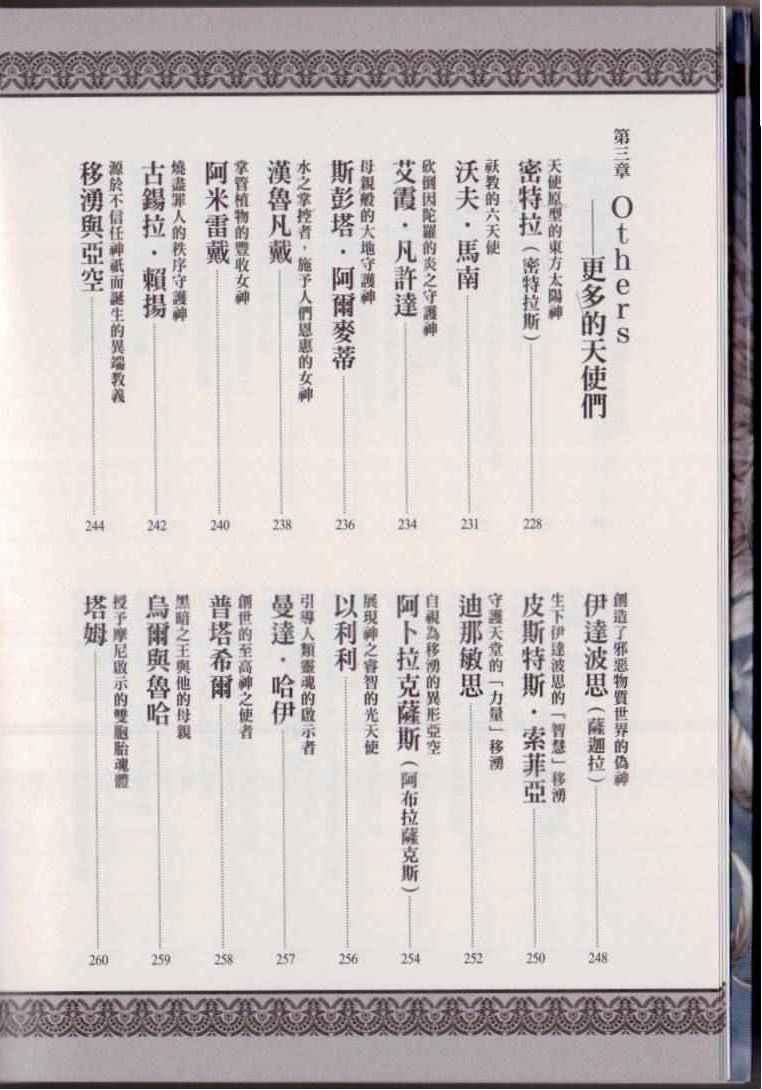 第三章 Others
——更多的天使們
天使原型的東方太陽神
密特拉（密特拉斯） 228
祆教的六天使
沃夫・馬南 231
砍倒因陀羅的炎之守護神
艾霞・凡許達 234
母親般的大地守護神
斯彭塔・阿爾麥蒂 236
水之掌控者，施予人們恩惠的女神
漢魯凡戴 238
掌管植物的豐收女神
阿米雷戴 240
燒盡罪人的秩序守護神
古錫拉・賴揚 242
源於不信任神祇而誕生的異端教義
移湧與亞空 244
創造了邪惡物質世界的偽神
伊達波思（薩迦拉） 248
生下伊達波思的「智慧」移湧
皮斯特斯・索菲亞 250
守護天堂的「力量」移湧
迪那敏思 252
自視為移湧的異形亞空
阿卜拉克薩斯（阿布拉薩克斯） 254
展現神之睿智的光天使
以利利 256
引導人類靈魂的啟示者
曼達・哈伊 257
創世的至高神之使者
普塔希爾 258
黑暗之王與他的母親
烏爾與魯哈 259
授予摩尼啟示的雙胞胎魂體
塔姆 260